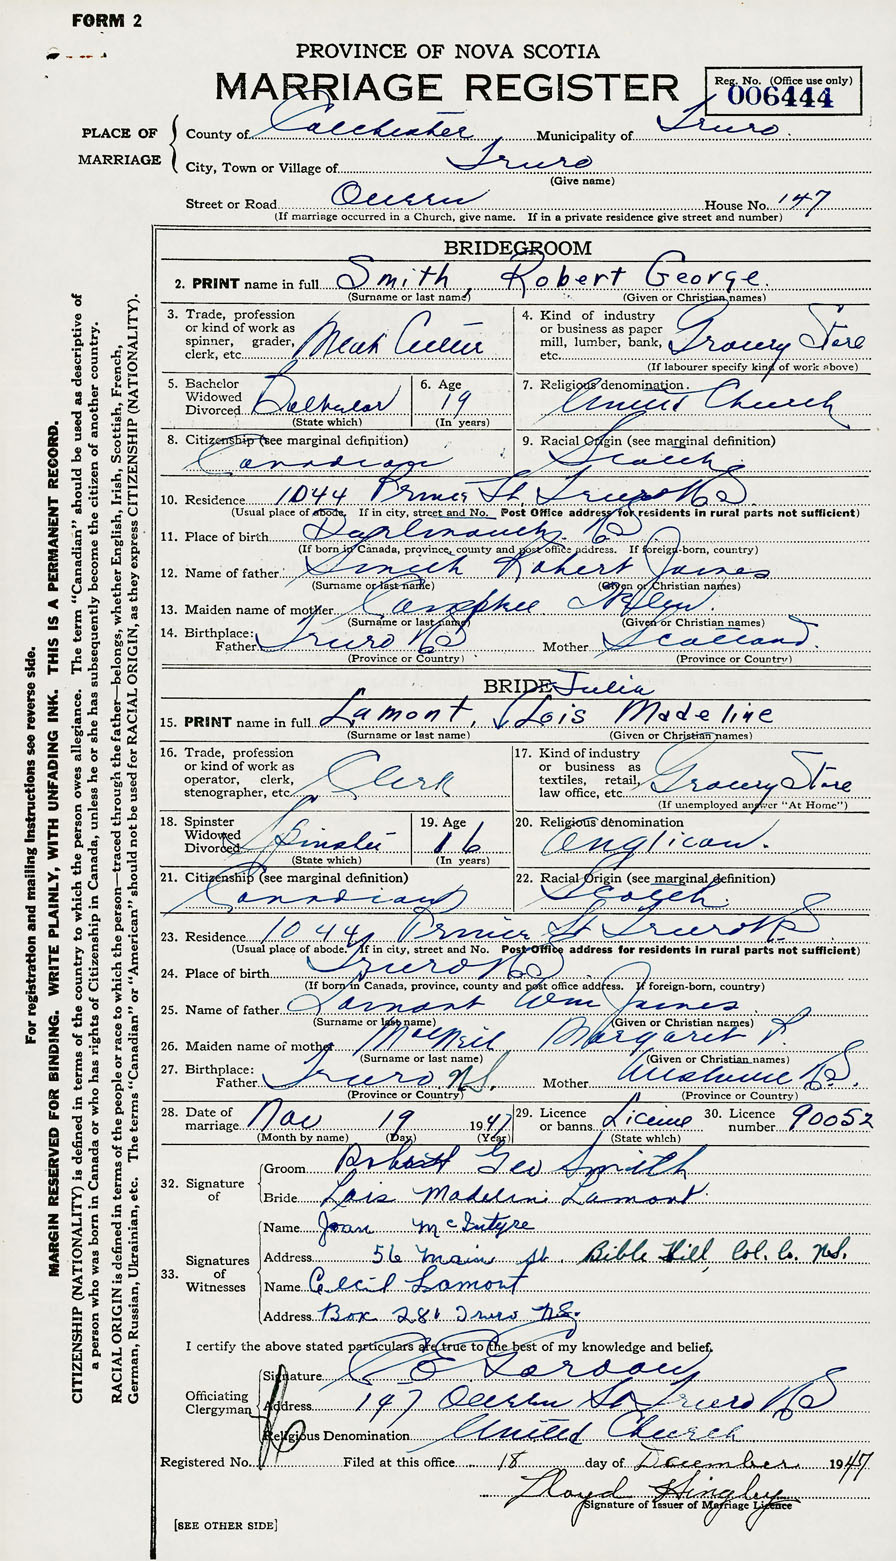 FORM 2
PROVINCE OF NOVA SCOTIA
MARRIAGE REGISTER
Reg. No. (Office use only)
006444
PLACE OF MARRIAGE
County of Colchester Municipality of Truro.
City, Town or Village of Truro
(Give name)
Street or Road Queen House No. 147
(If marriage occurred in a Church, give name. If in a private residence give street and number)
BRIDEGROOM
2. PRINT name in full Smith, Robert George.
(Surname or last name) (Given or Christian names)
3. Trade, profession or kind of work as spinner, grader, clerk, etc. Meat Cutter
4. Kind of industry or business as paper mill, lumber, bank, etc. Grocery Store
(If labourer specify kind of work above)
5. Bachelor Widowed Divorced Bachelor
(State which)
6. Age 19
(In years)
7. Religious denomination. United Church
8. Citizenship (see marginal definition)
Canadian
9. Racial Origin (see marginal definition)
Scotch
10. Residence 1044 Prince St, Truro N S
(Usual place of abode. If in city, street and No. Post Office address for residents in rural parts not sufficient)
11. Place of birth Dartmouth N S
(If born in Canada, province, county and post office address. If foreign-born, country)
12. Name of father Smith Robert James
(Surname or last name) (Given or Christian names)
13. Maiden name of mother Campbell Helen.
(Surname or last name) (Given or Christian names)
14. Birthplace: Father Truro N S Mother Scotland.
(Province or Country) (Province or Country)
BRIDE
Julia
15. PRINT name in full Lamont, √Lois Madeline
(Surname or last name) (Given or Christian names)
16. Trade, profession or kind of work as operator, clerk, stenographer, etc. Clerk
17. Kind of industry or business as textiles, retail, law office, etc. Grocery Store
(If unemployed answer "At Home")
18. Spinster Widowed Divorced Spinster
(State which)
19. Age 16
(In years)
20. Religious denomination
Anglican.
21. Citizenship (see marginal definition)
Canadian
22. Racial Origin (see marginal definition)
Scotch.
23. Residence 1044 Prince St Truro N.S.
(Usual place of abode. If in city, street and No. Post Office address for residents in rural parts not sufficient)
24. Place of birth Truro N S
(If born in Canada, province, county and post office address. If foreign-born, country)
25. Name of father Lamont Wm James
(Surname or last name) (Given or Christian names)
26. Maiden name of mother MacNeil Margaret
(Surname or last name) (Given or Christian names)
27. Birthplace: Father Truro N.S. Mother N.S.
(Province or Country) (Province or Country)
28. Date of marriage Nov 19 1947
(Month by name) (Day) (Year)
29. Licence or banns License
(State which)
30. Licence number 90052
32. Signature of
Groom Robert Geo Smith
Bride Lois Madeline Lamont.
33. Signatures of Witnesses
Name Joan McIntyre
Address 56 Main St. Bible Hill, Col. Co. N.S.
Name Cecil Lamont
Address Box 281 Truro N.S.
I certify the above stated particulars are true to the best of my knowledge and belief.
Officiating Clergyman
Signature C E Gordon
Address 147 Queen St Truro N S
Religious Denomination United Church
Registered No. Filed at this office 18 day of December 1947
Lloyd Hingley
Signature of Issuer of Marriage Licence
[SEE OTHER SIDE]
For registration and mailing instructions see reverse side.
MARGIN RESERVED FOR BINDING. WRITE PLAINLY, WITH UNFADING INK. THIS IS A PERMANENT RECORD.
CITIZENSHIP (NATIONALITY) is defined in terms of the country to which the person owes allegiance. The term "Canadian" should be used as descriptive of
a person who was born in Canada or who has rights of Citizenship in Canada, unless he or she has subsequently become the citizen of another country.
RACIAL ORIGIN is defined in terms of the people or race to which the person—traced through the father—belongs, whether English, Irish, Scottish, French,
German, Russian, Ukrainian, etc. The terms "Canadian" or "American" should not be used for RACIAL ORIGIN, as they express CITIZENSHIP (NATIONALITY).